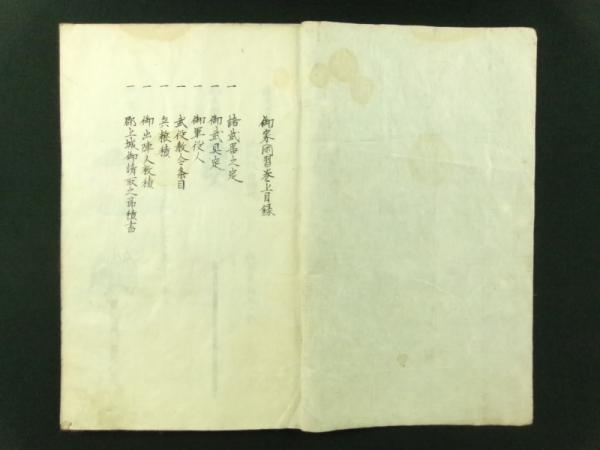 御家聞習巻上目録
一 諸武器之定
一 御武具定
一 御軍役人
一 武役教令条目
一 兵粮積
一 御出陣人数積
一 郡上城御請取之節積書